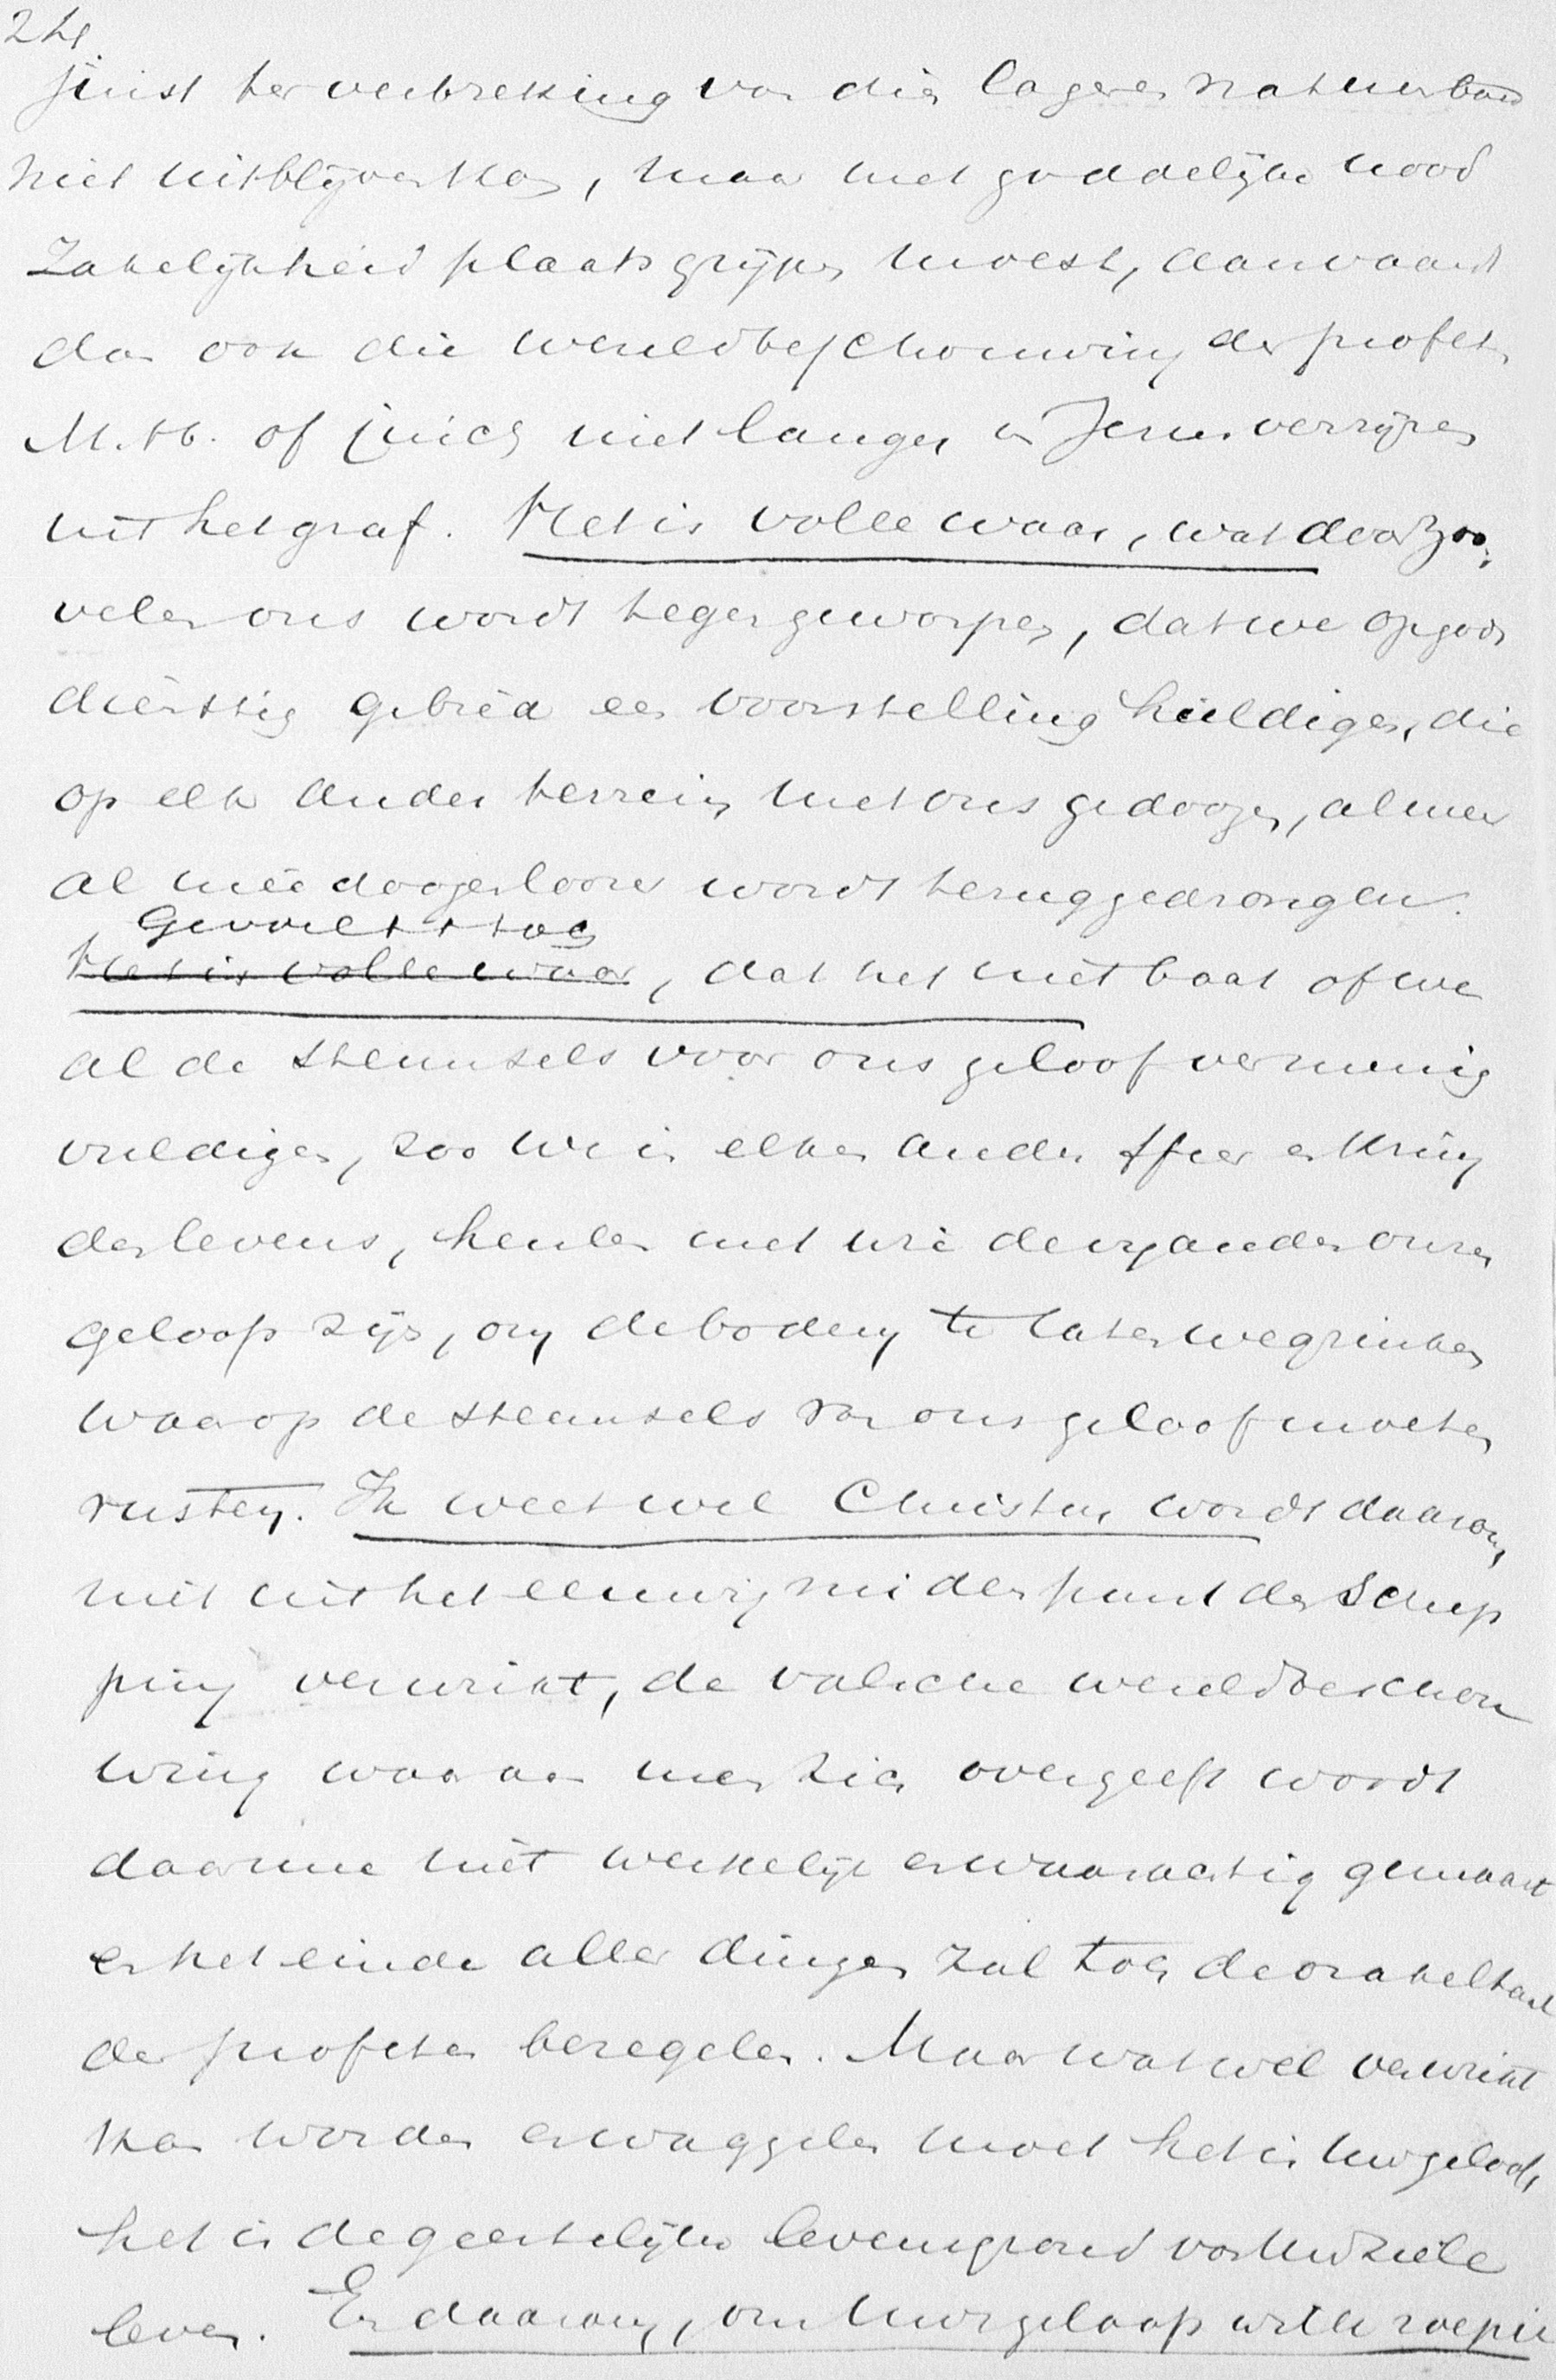 24
juist her verbreking van die lagere natuurband
niet uitblijven kon, maar met goddelijke nood
zakelijkheid plaats grijpen moest, aanvaard
dan ook die wereldbeschouwing der profeten
M. H. of juich niet langer in Jesus verrijzen
uit het graf. Het is volle waar, wat door zoo
velen ons wordt tegengeworpen, dat we op gods
dienstig gebied een voorstelling huldigen, die
op elk ander terrein met ons gedoogen, al meer
al meedoogenlooser wordt teruggedrongen.
Gevoelt toch
Het is volle waar, dat het niet baat of we
al de steunsels voor ons geloof vermenig
vuldigen, zoo we in elken ander sfeer en kring
des levens, heulen met wie de vyanden onzes
geloofs zijn, om de bodem te laten wegzinken
waarop de steunsels van ons geloof moeten
rusten. Ik weet wel Christus wordt daarom
niet uit het eeuwig middenpunt der schep
ping verwrikt, de valsche wereldbeschou
wing waaraan men zich overgeeft wordt
daarmee niet werkelijk en waarachtig gemaakt
en het einde aller dingen zal toch de orakeltaal
der profeten bezegelen. Maar wat wel verwrikt
kan worden en waggelen moet het is uw geloof,
het is de geestelijke levensgrond van uw ziele
leven. En daarom, om uws geloofs wille roep ik